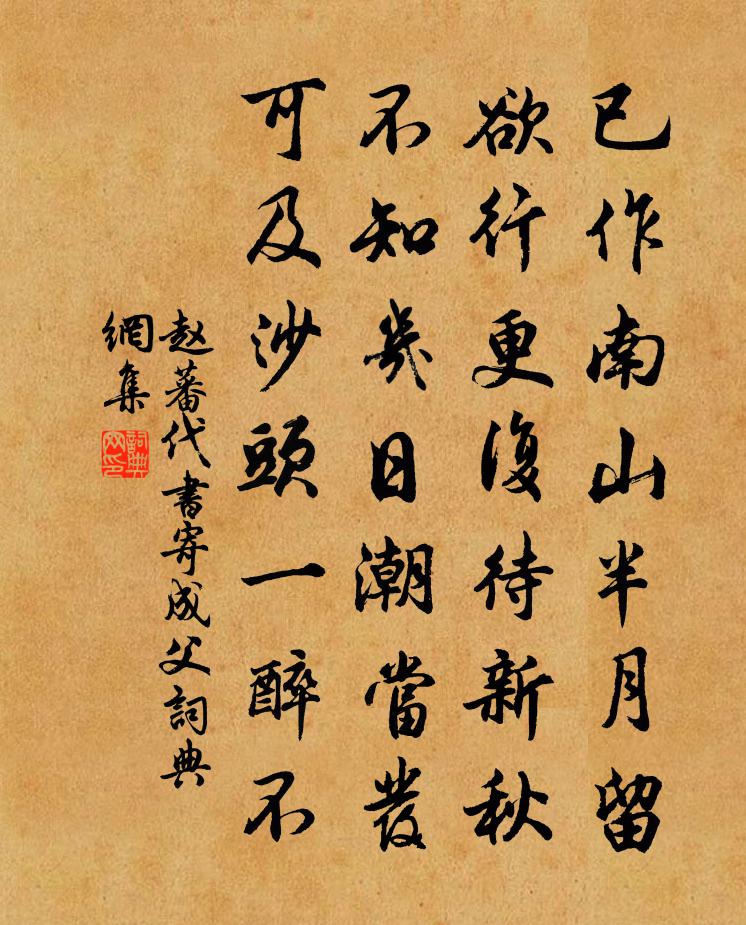 已作南山半月留
欲行更復待新秋
不知幾日潮當發
可及沙頭一醉不
赵蕃代書寄成父詞典
網集
詞典
网印